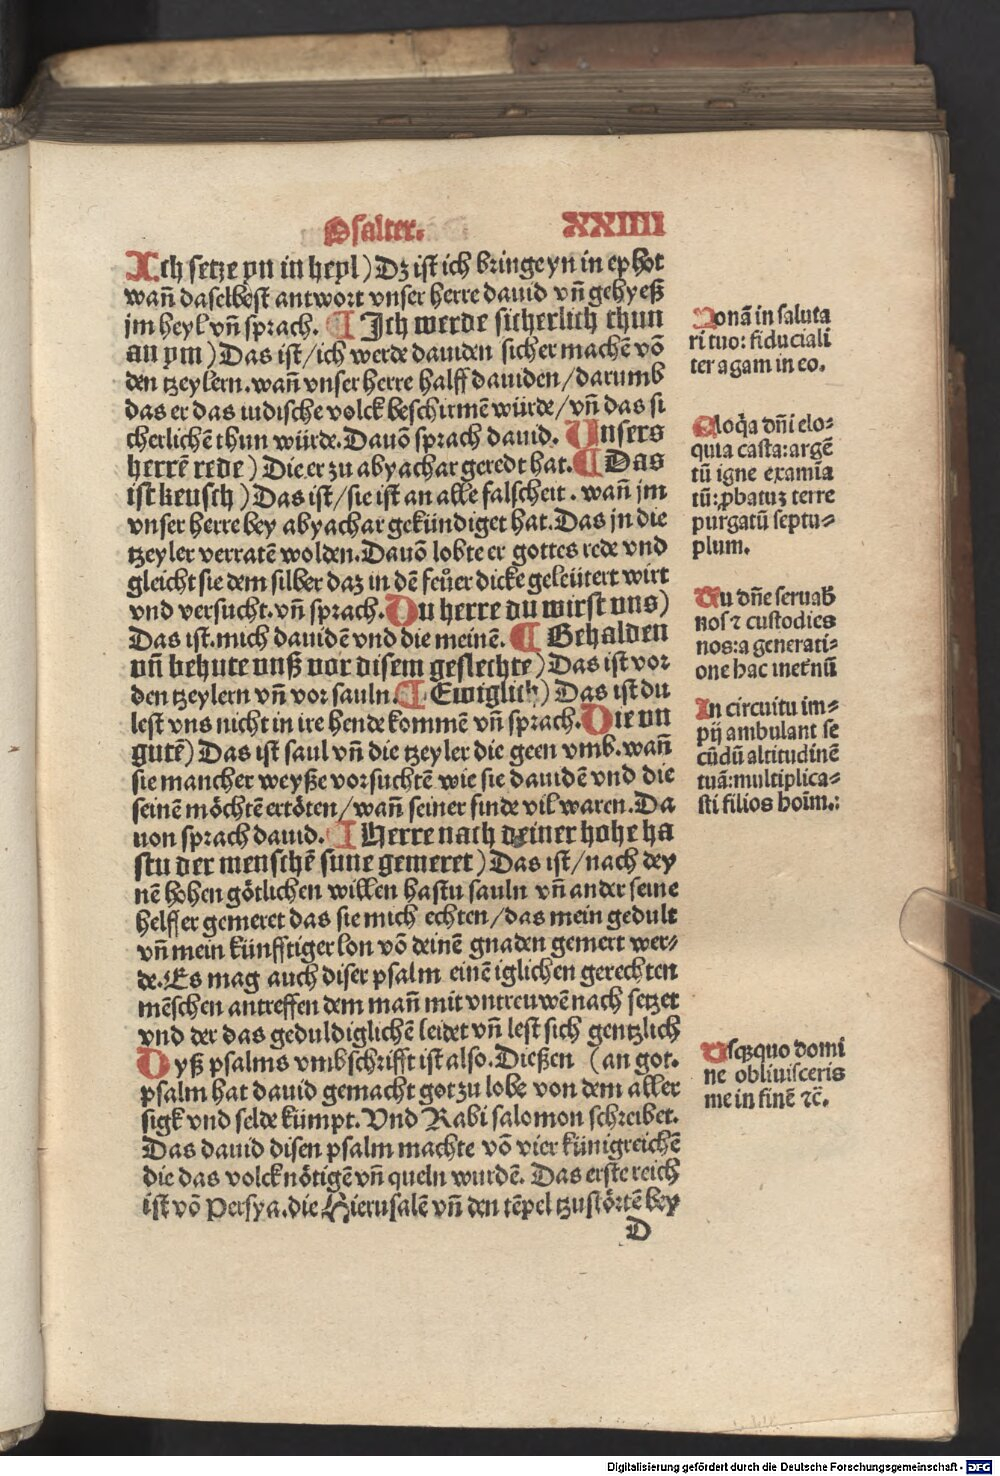 Psalter. XXIIII
Ich setze yn in heyl) Dz ist ich bringe yn in ephot
wañ daselbest antwort vnser herre dauid vñ gehyeß
jm heyl vñ sprach. ¶ Ich werde sicherlich thun
an ym) Das ist/ich werde dauiden sicher machē vō
den tzeylern. wañ vnser herre halff dauiden/darumb
das er das iudische volck beschirmē würde/vñ das si
cherlichē thun würde. Dauō sprach dauid. Unsers
herrē rede) Die er zu abyachar geredt hat. ¶ Das
ist keusch) Das ist/sie ist an alle falscheit. wañ jm
vnser herre bey abyachar gekündiget hat. Das jn die
tzeyler verratē wolden. Dauō lobte er gottes rede vnd
gleicht sie dem silber daz in dē feuer dicke geleütert wirt
vnd versucht. vñ sprach. Du herre du wirst uns)
Das ist. mich dauidē vnd die meinē. ¶ Behalden
uñ behute unß vor disem geslechte) Das ist vor
den tzeylern vñ vor sauln. ¶ Ewiglich) Das ist du
lest vns nicht in ire hende kommē vñ sprach. Die un
gutē) Das ist saul vñ die tzeyler die geen vmb. wañ
sie mancher weyße vorsuchtē wie sie dauidē vnd die
seinē möchtē ertöten/wañ seiner finde vil waren. Da
uon sprach dauid. ¶ Herre nach deiner hohe ha
stu der menschē sune gemeret) Das ist/nach dey
nē hohen götlichen willen hastu sauln vñ ander seine
helffer gemeret das sie mich echten/das mein gedult
vñ mein künfftiger lon vō deinē gnaden gemert wer⸗
de. Es mag auch diser psalm einē iglichen gerechten
mēschen antreffen dem mañ mit vntreuwē nach setzet
vnd der das geduldiglichē leidet vñ lest sich gentzlich
Dyß psalms vmbschrifft ist also. Dießen (an got.
psalm hat dauid gemacht got zu lobe von dem aller
sigk vnd selde kümpt. Vnd Rabi salomon schreibet.
Das dauid disen psalm machte vō vier künigreichē
die das volck nötigē vñ queln wurdē. Das erste reich
ist vō Persya. die Hierusalē vñ den tēpel tzustörtē bey
D
Ponā in saluta
ri tuo: fiduciali
ter agam in eo.
Eloq̄a dñi elo⸗
quia casta: argē
tū igne examīa
tū: ꝓbatuʒ terre
purgatū septu⸗
plum.
Tu dñe seruab̄
nos ⁊ custodies
nos: a generati⸗
one hac inet̄nū
In circuitu im⸗
pij ambulant se
cūdū altitudinē
tuā: multiplica⸗
sti filios hoīm.:
Usq̄quo domi
ne obliuisceris
me in finē ⁊c̄.
Digitalisierung gefördert durch die Deutsche Forschungsgemeinschaft - DFG